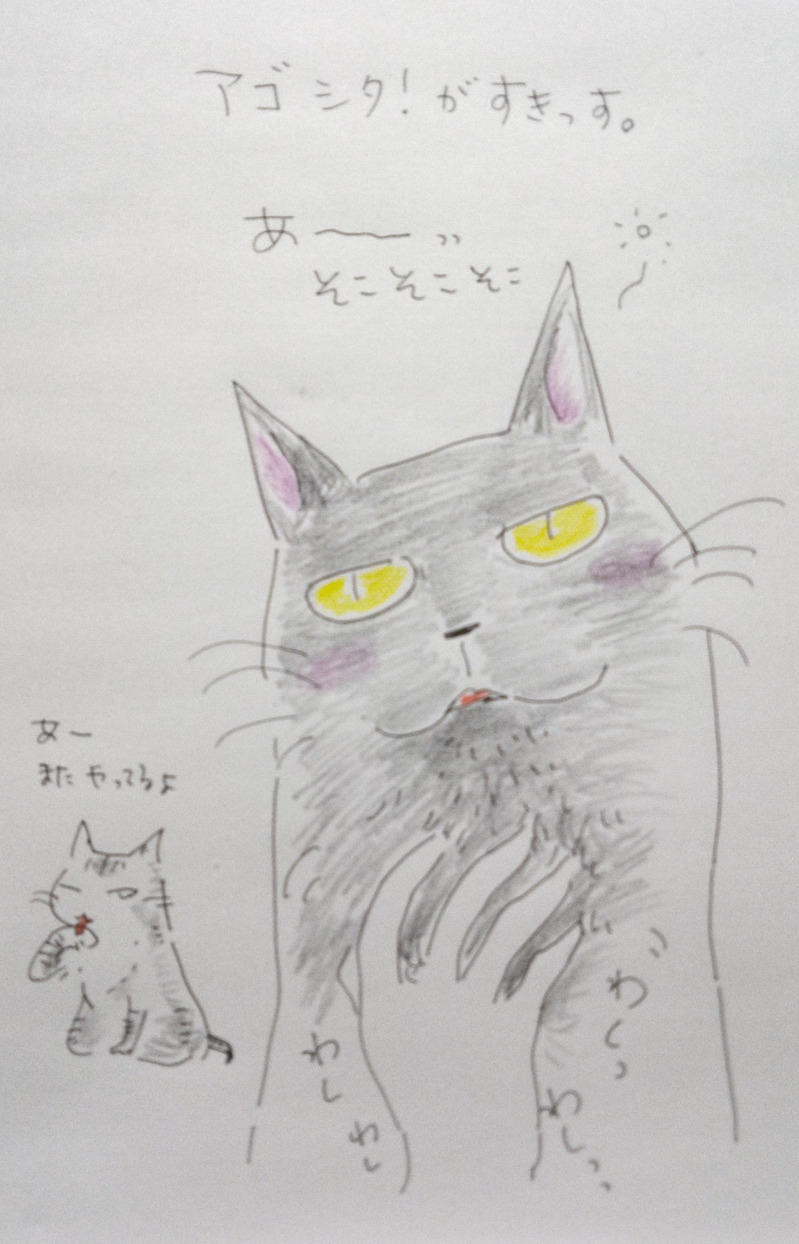 アゴシタ!がすきっす。
あ〜〜〃
そこそこそこ
あー
またやってるよ
わし
わし
わしっ
わしっ